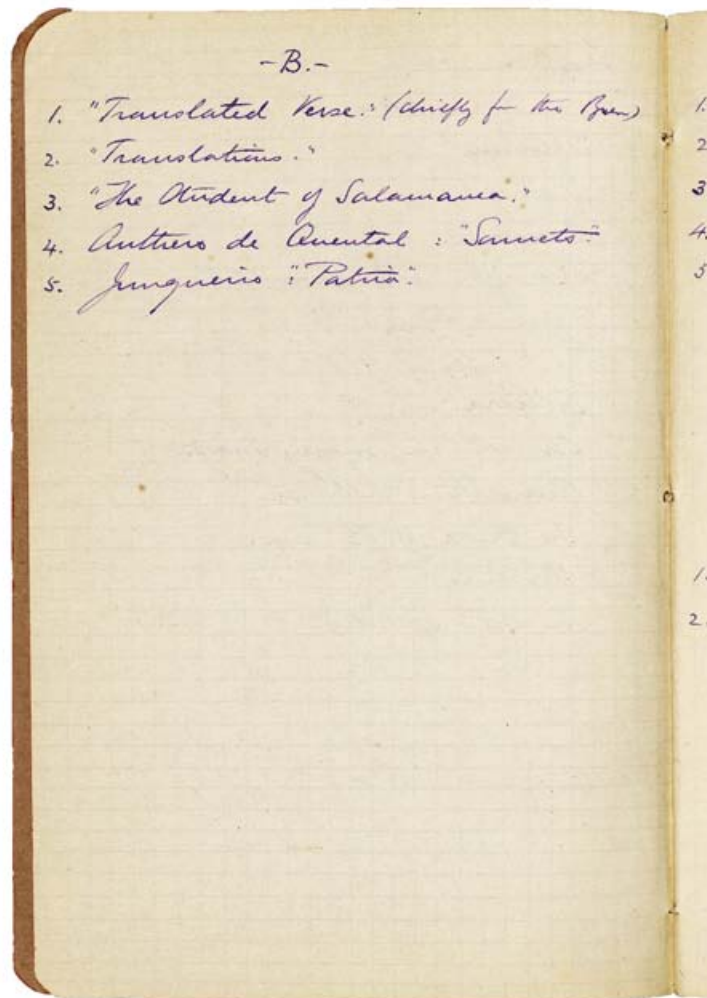 -B.-
1. "Translated Verse." (chiefly f the
2. "Translations."
3. "The Student of Salamanca."
4. Anthero de Quental : "Sonnets"
5. Junqueiro : "Patria".
1.
2
3
4.
5
1.
2.